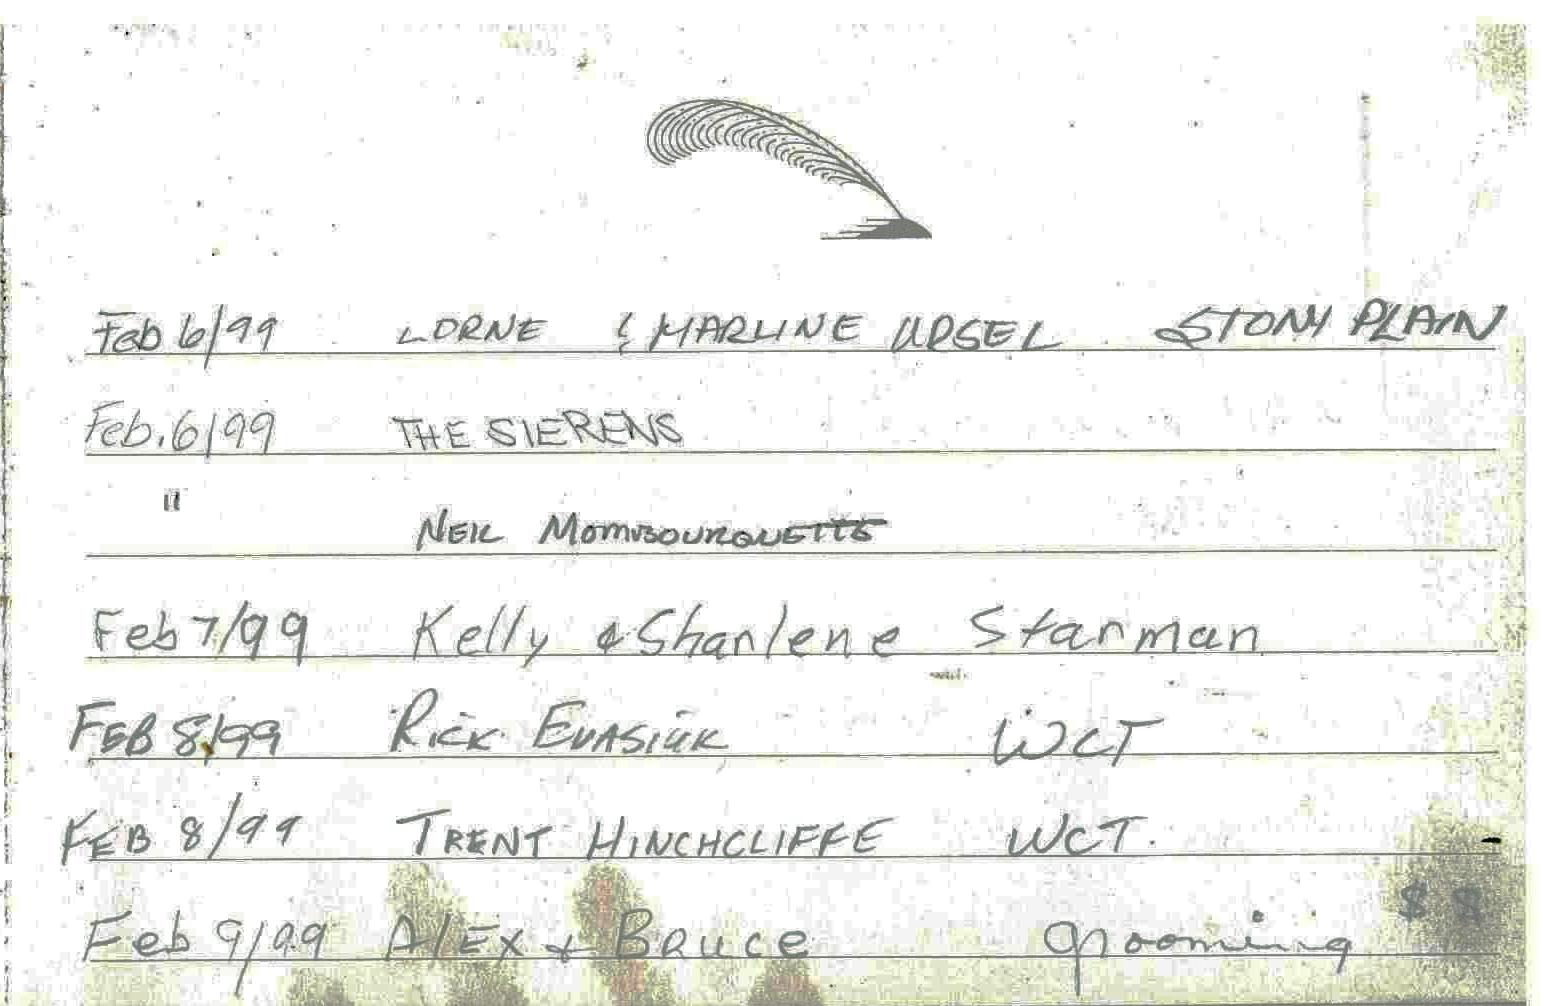 Feb 6/99 LORNE & MARLINE URSEL STONY PLAIN
Feb. 6/99 THE SIERENS
" NEIL MOMBOURQUETTE
Feb 7/99 Kelly & Sharlene Starman
FEB 8/99 RICK EVASIUK WCT
FEB 8/99 TRENT HINCHCLIFFE WCT.
Feb 9/99 ALEX + BRUCE grooming $8